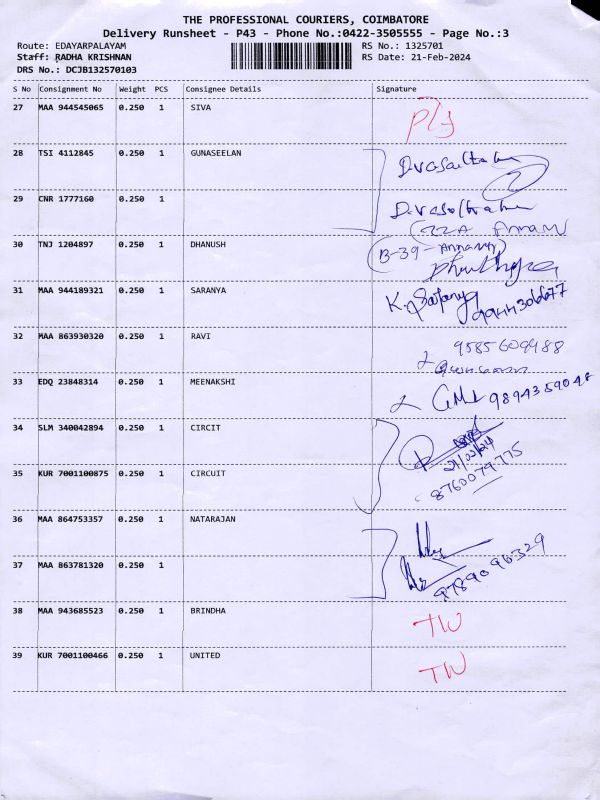 THE PROFESSIONAL COURIERS, COIMBATORE
Delivery Runsheet - P43 - Phone No.:0422-3505555 - Page No.:3
Route: EDAYARPALAYAM RS No.: 1325701
Staff: RADHA KRISHNAN RS Date: 21-Feb-2024
DRS No.: DCJB132570103
S No Consignment No Weight PCS Consignee Details Signature
27 MAA 944545065 0.250 1 SIVA
28 TSI 4112845 0.250 1 GUNASEELAN
29 CNR 1777160 0.250 1
22A
30 TNJ 1204897 0.250 1 DHANUSH B-39-
31 MAA 944189321 0.250 1 SARANYA K.
32 MAA 863930320 0.250 1 RAVI 9585609488
33 EDQ 23848314 0.250 1 MEENAKSHI 9894359048
34 SLM 340042894 0.250 1 CIRCIT
21/02/24
35 KUR 7001100875 0.250 1 CIRCUIT 8760079775
36 MAA 864753357 0.250 1 NATARAJAN
37 MAA 863781320 0.250 1 9789096329
38 MAA 943685523 0.250 1 BRINDHA TW
39 KUR 7001100466 0.250 1 UNITED TW